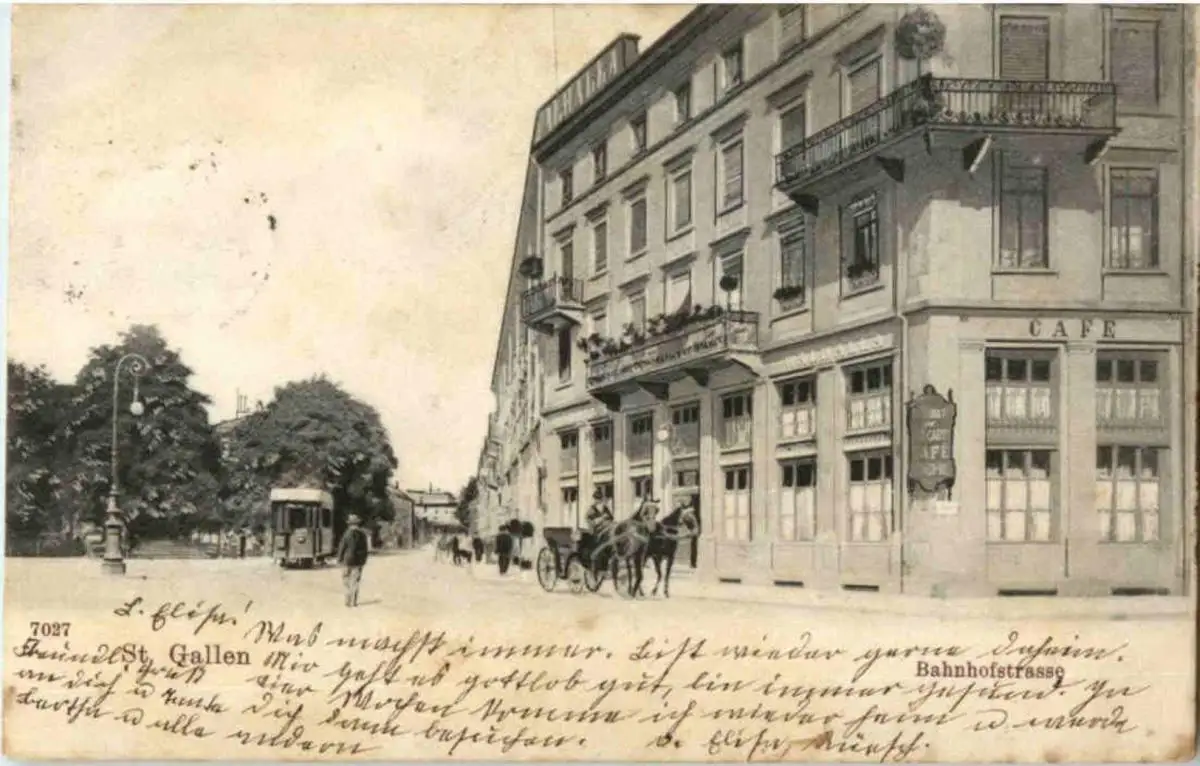 WALHALLA
CAFÉ
CAFÉ
7027
St. Gallen
Bahnhofstrasse
L. Elise!
Was machst immer. Bist wieder gerne daheim.
Mir geht es gottlob gut, bin immer gesund. In
vier Wochen komme ich wieder heim u werde
Dich dann besuchen. d. Elise
Freundl. Gruß
an dich u Tante
Bertha u alle andern